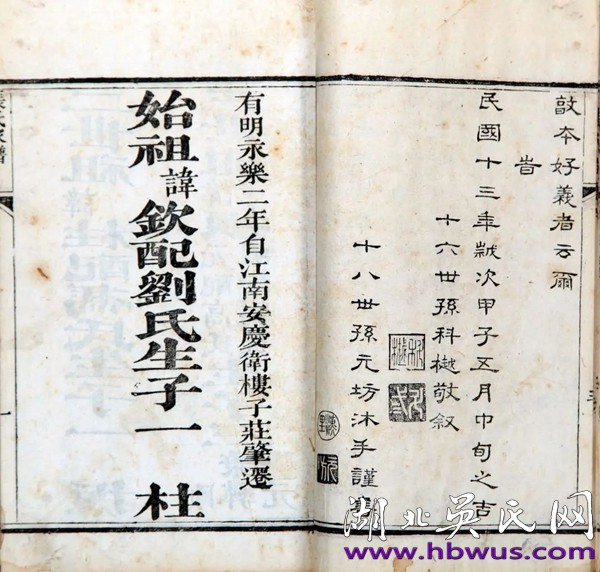 敦本好義者云爾
旹
民國十三年歲次甲子五月中旬之吉
十六世孫科樾敬叙
十八世孫元坊沐手謹
有明永樂二年自江南安慶衛樓子莊肇遷
始祖諱欽配劉氏生子一 桂
湖北吳氏网
www.hbwus.com